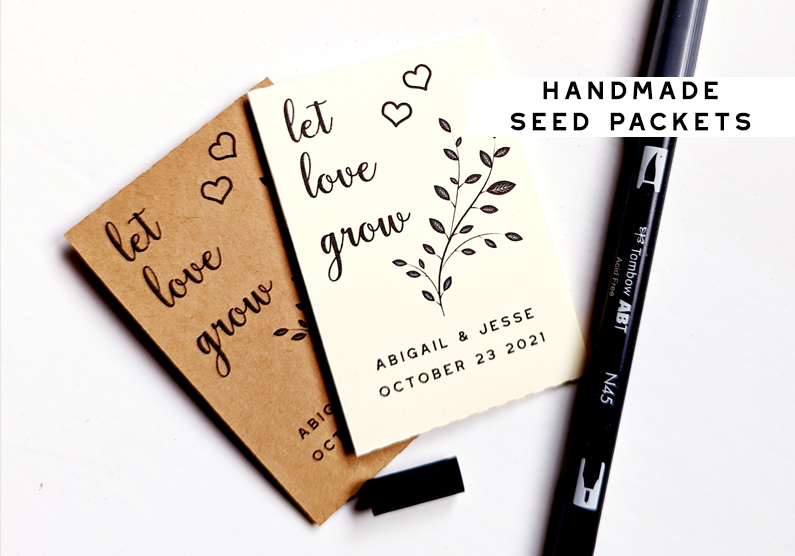 HANDMADE
SEED PACKETS
let
love
grow
ABIGAIL & JESSE
OCTOBER 23 2021
let
love
grow
ABIG
OCT
Tombow ABT
Acid Free
N45